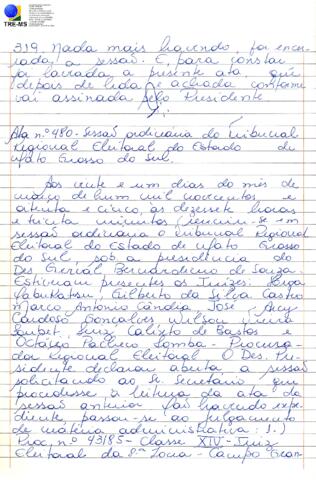 TRE-MS
319. Nada mais havendo, foi encer-
rada a sessão. E, para constar
foi lavrada a presente ata, que
depois de lida e achada conforme
vai assinada pelo Presidente.
Ata nº 480 - Sessão ordinária do Tribunal
Regional Eleitoral do Estado de
Mato Grosso do Sul.
Aos vinte e um dias do mês de
março de hum mil novecentos e
oitenta e cinco, às dezesseis horas
e trinta minutos, reuniu-se em
sessão ordinária o Tribunal Regional
Eleitoral do Estado de Mato Grosso
do Sul, sob a presidência do
Des. Gerval Bernardino de Souza.
Estiveram presentes os Juízes:
Gilberto da Silva Castro
Marco Antonio Cândia, José
Cardoso Gonçalves Wilson Vieira
Luiz Calixto de Bastos e
Octávio Pacheco Lomba - Procura-
dor Regional Eleitoral. O Des. Pre-
sidente declarou aberta a sessão
solicitando ao Sr. Secretário que
procedesse à leitura da ata da
sessão anterior. Não havendo expe-
diente, passou-se ao julgamento
de matéria administrativa: 1.)
Proc. nº 43/85 - Classe XIV - Juiz
Eleitoral da 8ª Zona - Campo Gran-